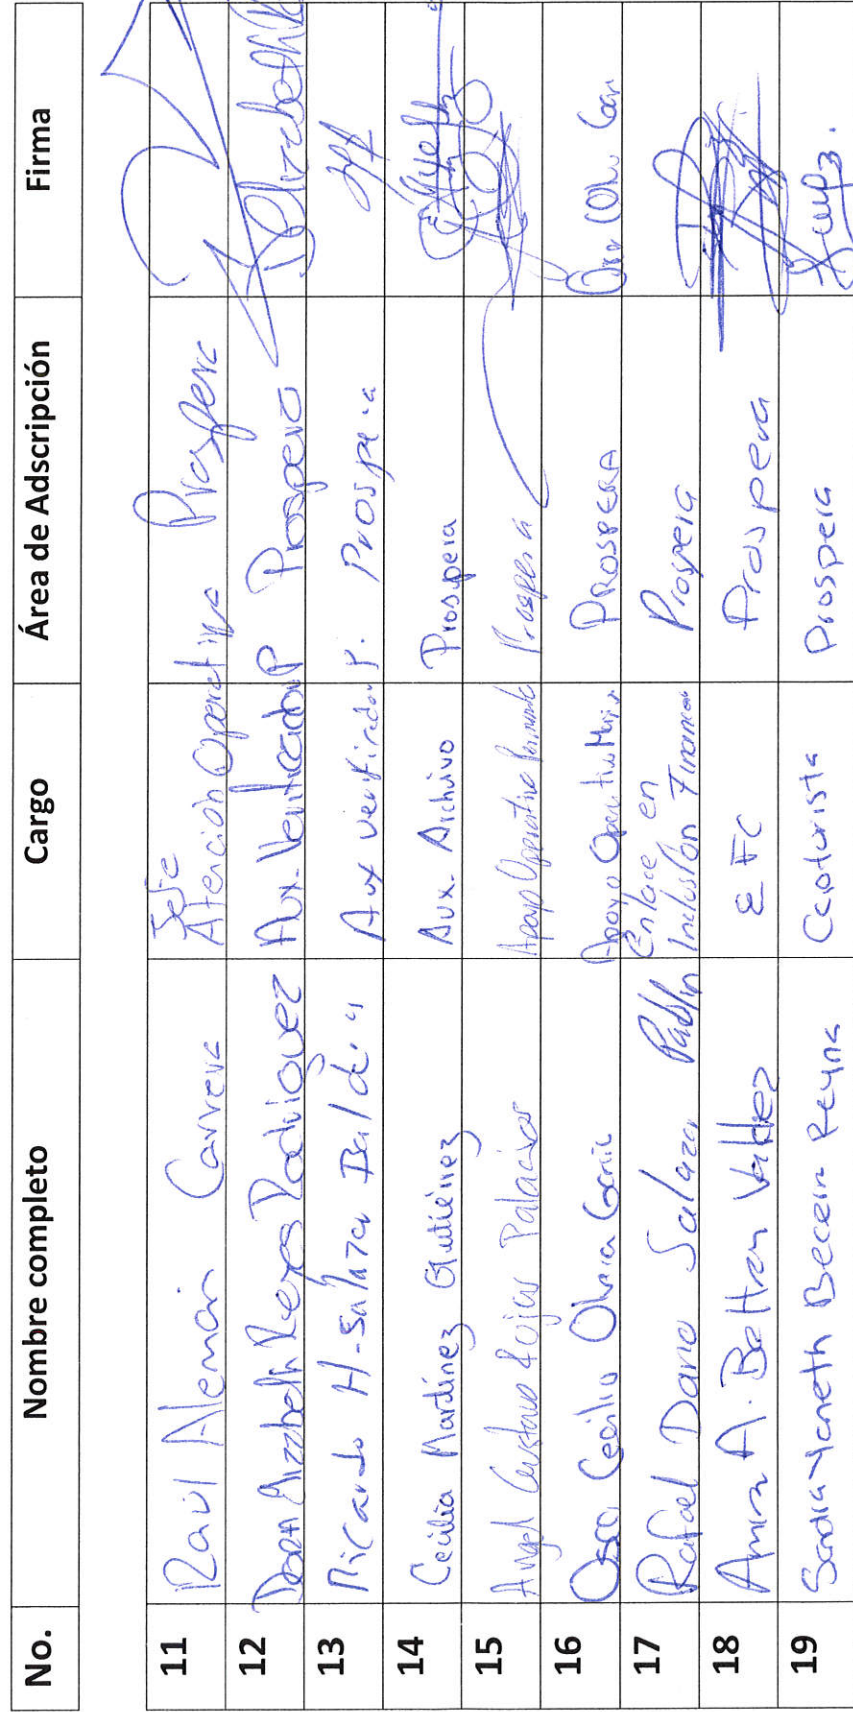 No. Nombre completo Cargo Área de Adscripción Firma
11 Raúl Alemán Carrera Jefe Atención Operativa Prospera
12 Elizabeth Reyes Rodriguez Aux. Verificador P Prospera Elizabeth
13 Ricardo H. Salazar Aux verificador P. Prospera
14 Cecilia Martínez Gutiérrez Aux. Archivo Prospera
15 Angel Gustavo Rojas Palacios Apoyo Operativo Prospera
16 Cecilio Olvera Apoyo Operativo PROSPERA
17 Rafael Dario Salazar Padilla Enlace en Inclusión Financiera Prospera
18 A. Beltran Valdez EFC Prospera
19 Sandra Yaneth Becerra Reyna Capturista Prospera